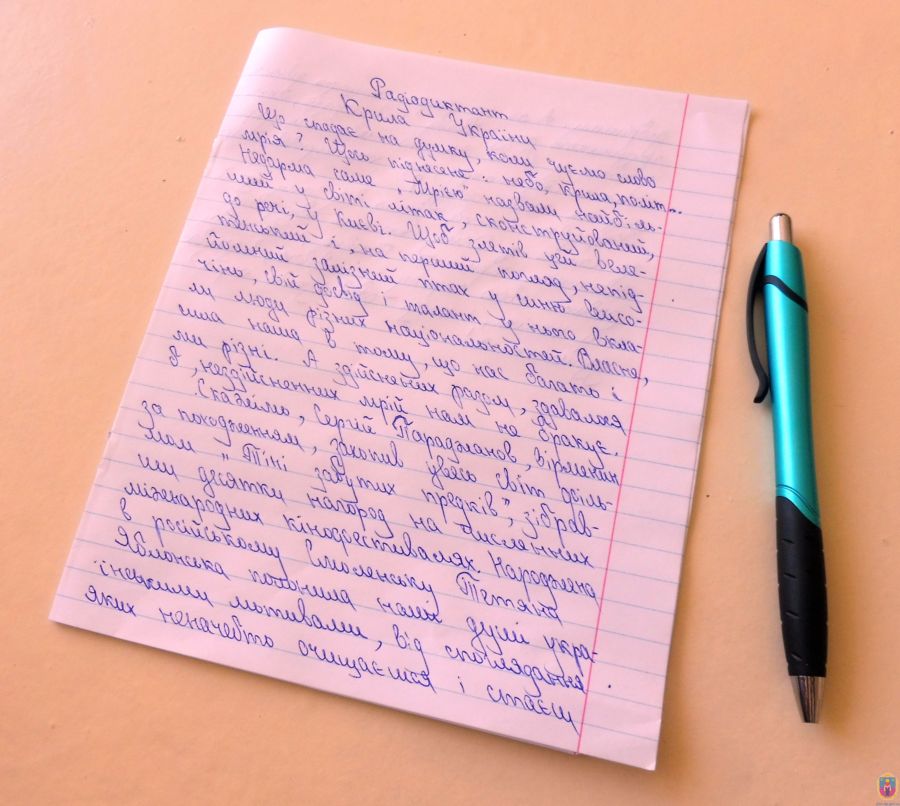 Радіодиктант
Крила України
Що спадає на думку, коли чуємо слово
мрія? Щось піднесене: небо, крила, політ...
Недарма саме „Мрією" назвали найбіль-
ший у світі літак, сконструйований,
до речі, у Києві. Щоб злетів цей веле-
тенський і, на перший погляд, непід-
йомний залізний птах у синю висо-
чінь, свій досвід і талант у нього вкла-
ли люди різних національностей. Власне,
сила наша в тому, що нас багато і
ми різні. А здійснених разом, здавалося
б, нездійсненних мрій нам не бракує.
Скажімо, Сергій Параджанов, вірменин
за походженням, захопив увесь світ філь-
мом „Тіні забутих предків", зібрав-
ши десятки нагород на численних
міжнародних кінофестивалях. Народжена
в російському Смоленську Тетяна
Яблонська полонила наші душі укра-
їнськими мотивами, від споглядання
яких неначебто очищаєшся і стаєш